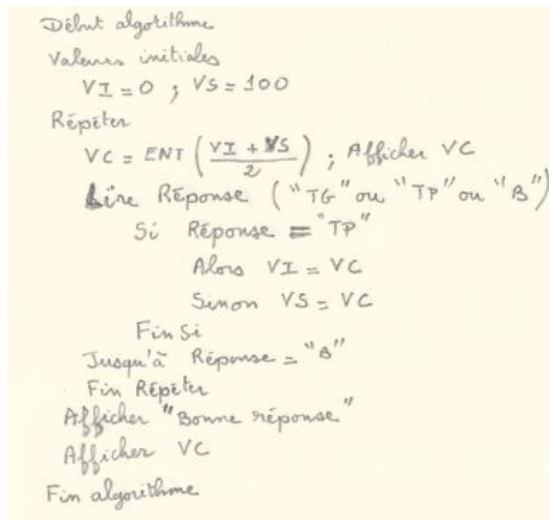 Début algorithme
Valeurs initiales
VI = 0 ; VS = 100
Répéter
VC = ENT ( (VI + VS) / 2 ) ; Afficher VC
Lire Réponse ("TG" ou "TP" ou "B")
Si Réponse = "TP"
Alors VI = VC
Sinon VS = VC
Fin Si
Jusqu'à Réponse = "B"
Fin Répéter
Afficher "Bonne réponse"
Afficher VC
Fin algorithme